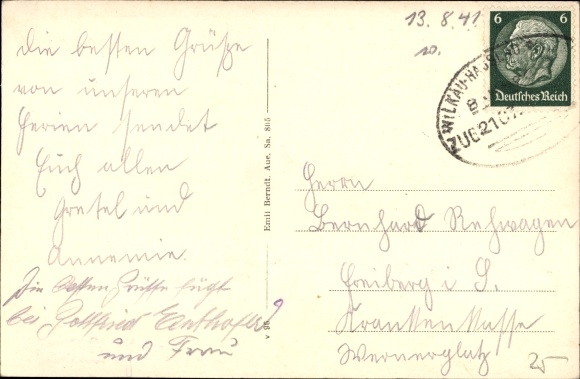 die besten Grüße
von unseren
Ferien sendet
Euch allen
Gretel und
Annemie.
Die besten Grüße fügt
bei Gottfried
und Frau
Emil Berndt, Aue, Sa. 805
v 96
13.8.41
10.
6 6
Deutsches Reich
WILKAU-HA
ZUG 2107
Herrn
Bernhard Rehwagen
Freiberg i. S.
Krankenkasse
Wernerplatz
25